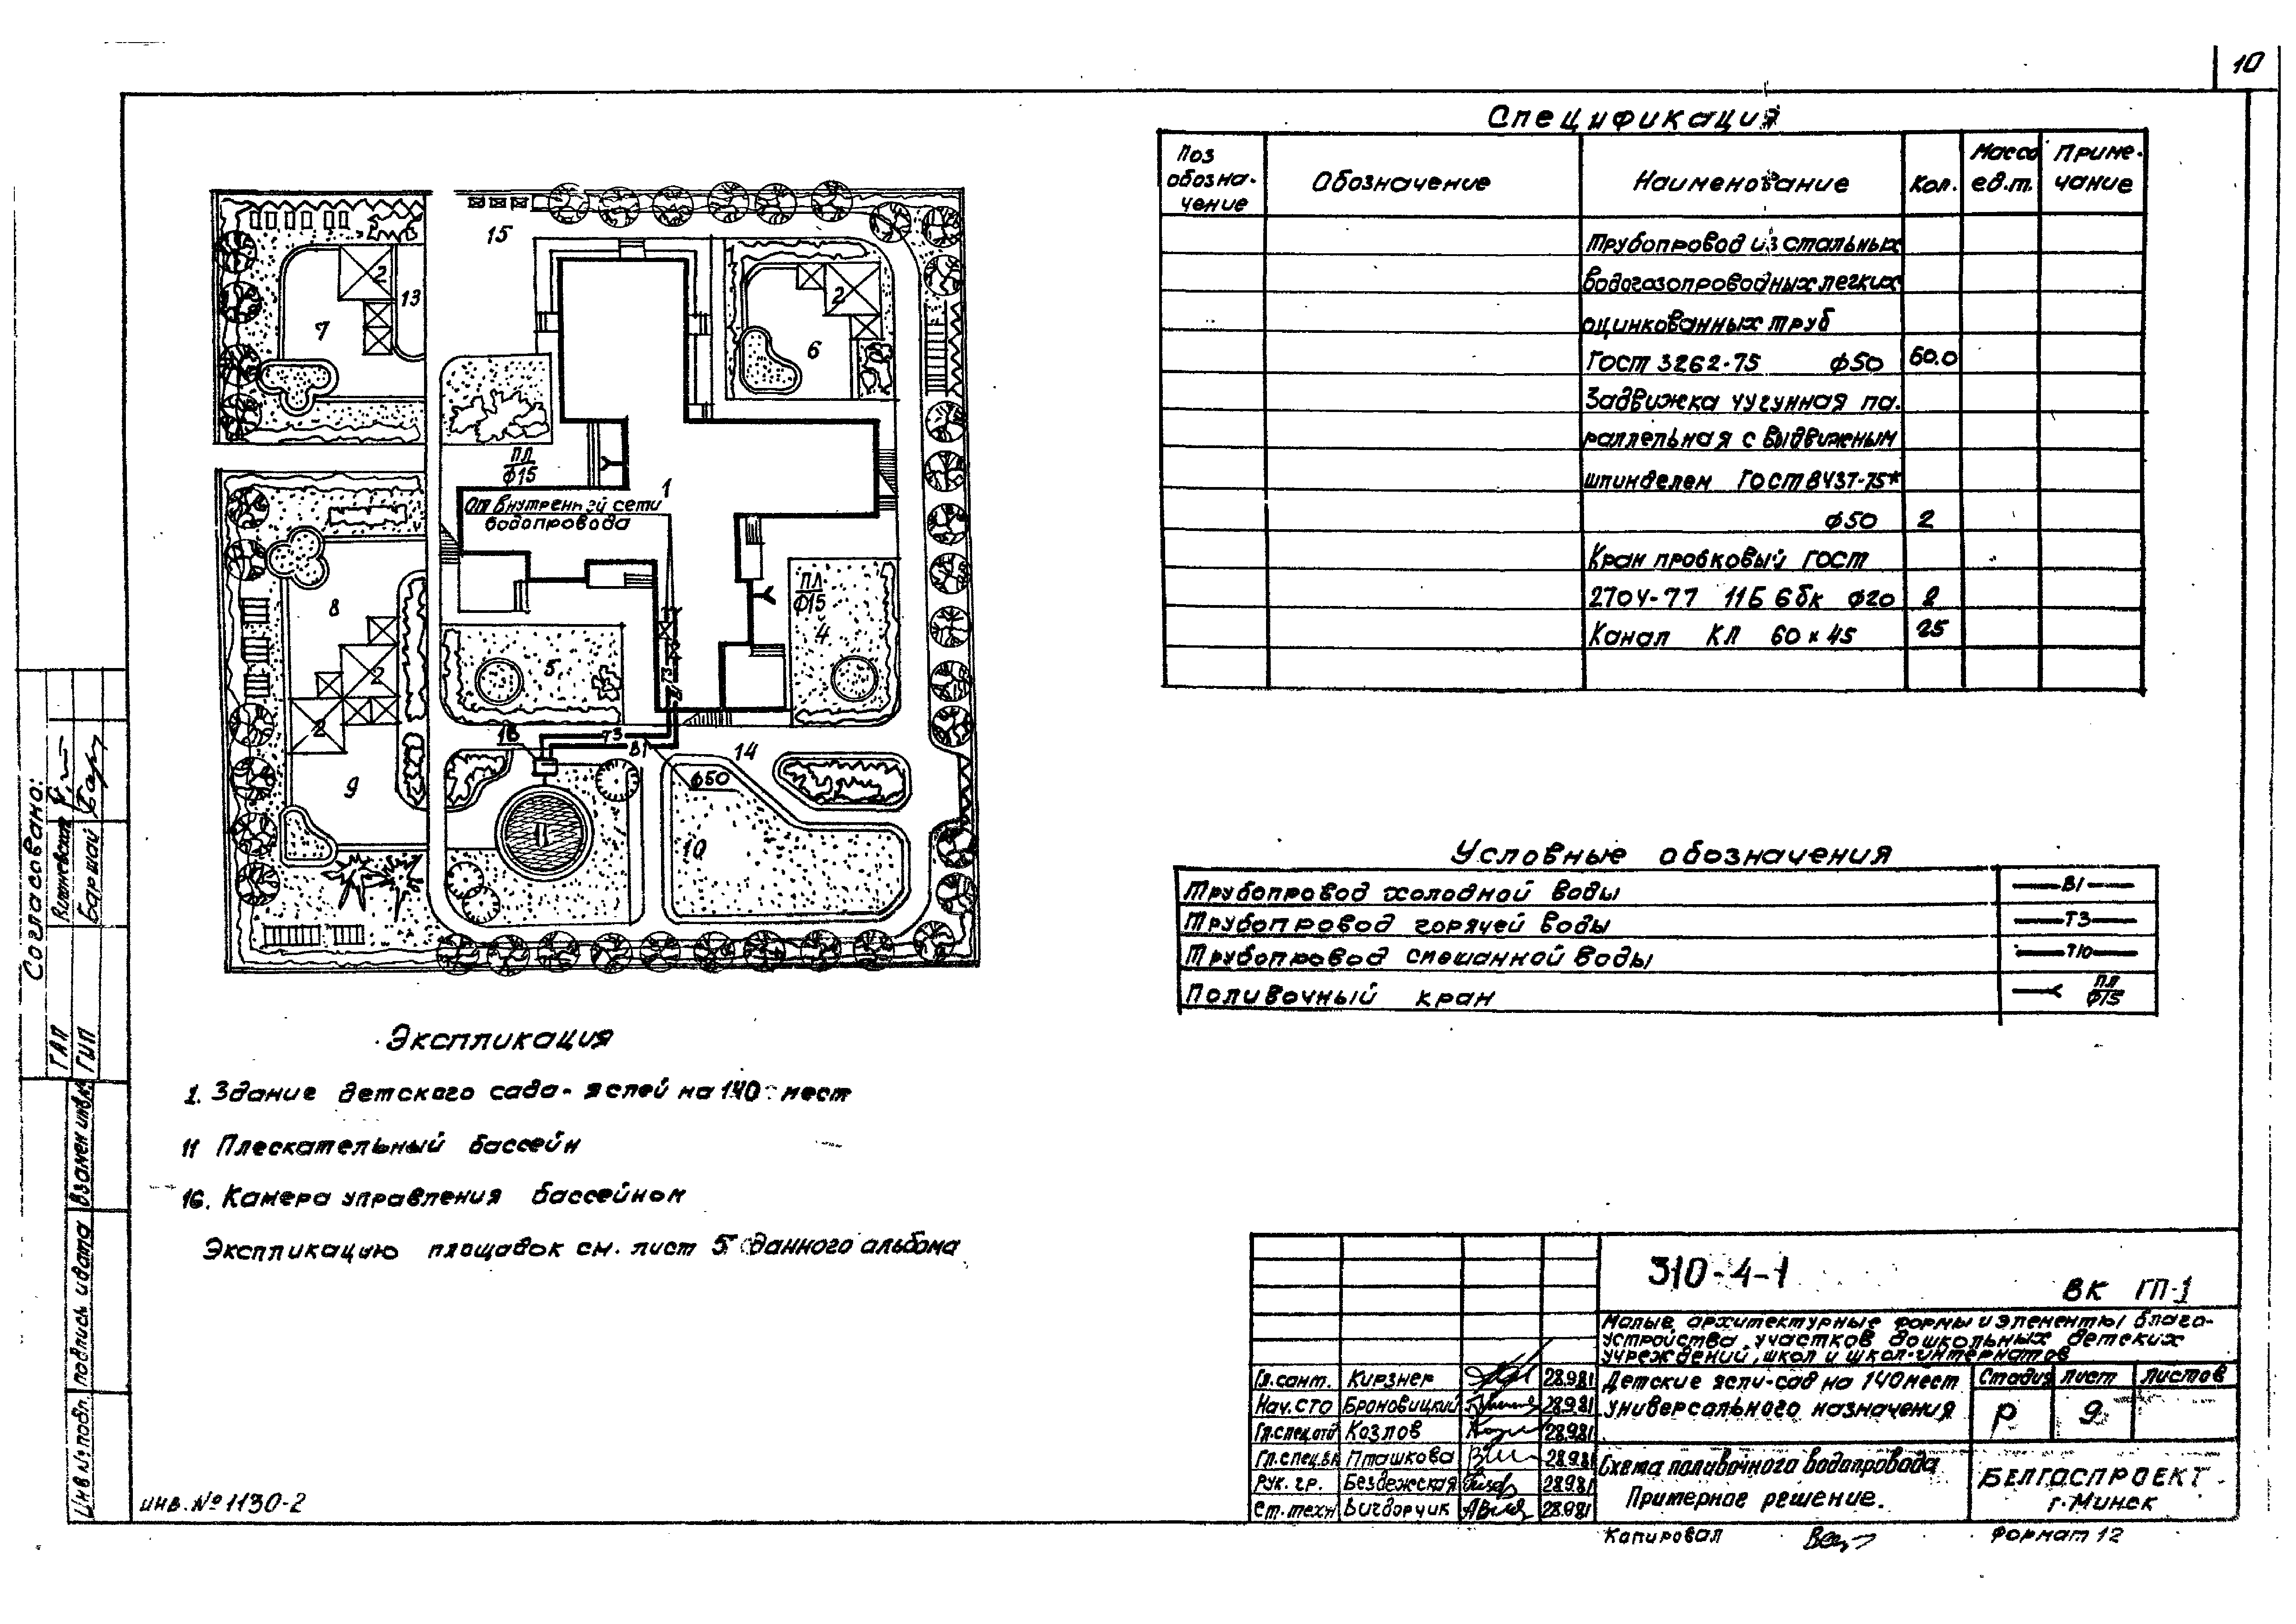 10
Спецификация
Поз обозна-чение
Обозначение
Наименование
Кол.
Масса ед.т.
Приме-чание
Трубопровод из стальных
водогазопроводных легких
оцинкованных труб
ГОСТ 3262-75 ф50 60.0
Задвижка чугунная па-
раллельная с выдвижным
шпинделем ГОСТ 8437-75*
ф50 2
Кран пробковый ГОСТ
2704-77 11Б 6бк ф20 2
Канал КЛ 60×45 25
15
2
13
7
2
6
ПЛ
ф15
1
От внутренней сети
водопровода
8
ПЛ
ф15
4
5
2
Т3
2
16
Т3
В1
14
9
ф50
11
10
Условные обозначения
Трубопровод холодной воды В1
Трубопровод горячей воды Т3
Трубопровод смешанной воды Т10
Поливочный кран ПЛ ф15
Экспликация
1. Здание детского сада-яслей на 140 мест
11 Плескательный бассейн
16. Камера управления бассейном
Экспликацию площадок см. лист 5 данного альбома
Согласовано:
ГАП Вишневская
ГИП Баршай
Взамен инв.№
Подпись и дата
Инв № подл.
инв. №1130-2
310-4-1
ВК ГП-1
Малые архитектурные формы и элементы благо-
устройства участков дошкольных детских
учреждений, школ и школ-интернатов
Гл.сант. Кирзнер 28.9.81
Нач.СТО Броновицкий 28.9.81
Гл.спец.отд Козлов 28.9.81
Гл.спец.вк Пташкова 28.9.81
Рук. гр. Бездежская 28.9.81
Ст.техн Вигдорчик 28.9.81
Детские ясли-сад на 140 мест
универсального назначения
Стадия Лист Листов
Р 9
Схема поливочного водопровода
Примерное решение.
БЕЛГОСПРОЕКТ
г. Минск
Копировал
Формат 12